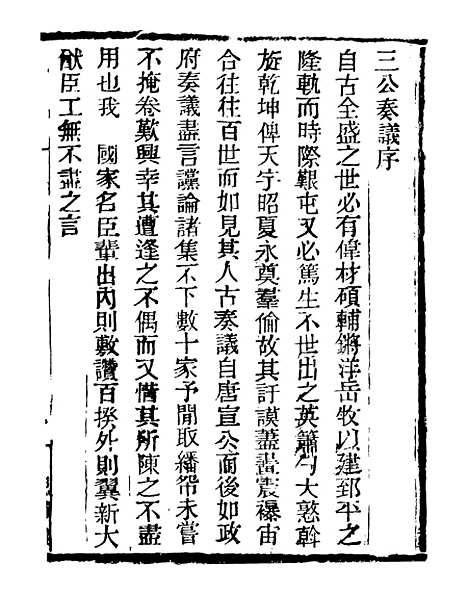 三公奏議序
自古全盛之世必有偉材碩輔鏘洋岳牧以建郅平之
隆軌而時際艱屯又必篤生不世出之英蕭勺大憝斡
旋乾坤俾天宇昭夏永奠羣倫故其訏謨藎畫震襮宙
合往往百世而如見其人古奏議自唐宣公而後如政
府奏議盡言讜論諸集不下數十家予閒取繙帋未嘗
不掩卷歎興幸其遭逢之不偶而又惜其所陳之不盡
用也我 國家名臣輩出內則敷讚百揆外則翼新大
猷臣工無不盡之言